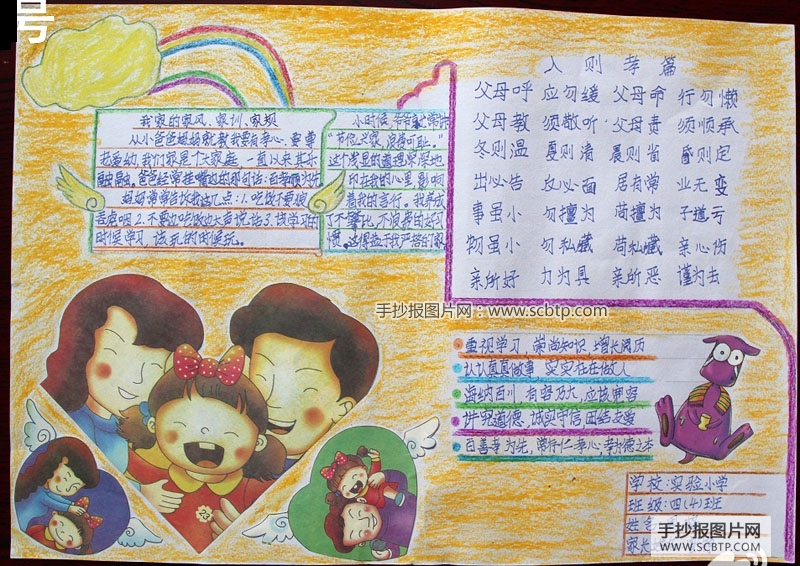 号
我家的家风、家训、家规
从小爸爸妈妈就教我要有孝心、要尊
老爱幼,我们家是个大家庭,一直以来其乐
融融。爸爸经常挂嘴边的那句话:百善孝为先
妈妈常常告诉我这几点:1.吃饭不要狼
吞虎咽 2.不要边吃饭边大声说话 3.该学习的
时候学习,该玩的时候玩。
小时候
“节俭兴家,浪费可耻。”
这个浅显的道理深深地
印在我的心里,影响
着我的言行。我养成
了不攀比,不浪费的好习
惯。这得益于我严格的家
入则孝篇
父母呼 应勿缓 父母命 行勿懒
父母教 须敬听 父母责 须顺承
冬则温 夏则凊 晨则省 昏则定
出必告 反必面 居有常 业无变
事虽小 勿擅为 苟擅为 子道亏
物虽小 勿私藏 苟私藏 亲心伤
亲所好 力为具 亲所恶 谨为去
手抄报图片网:www.scbtp.com
重视学习,崇尚知识,增长阅历
认认真真做事,实实在在做人
海纳百川,有容乃大,应该宽容
讲究道德,诚实守信,团结友爱
百善孝为先,常行仁孝心,孝为德之本
学校:实验小学
班级:四(4)班
姓名
家长
手抄报图片网
WWW.SCBTP.COM